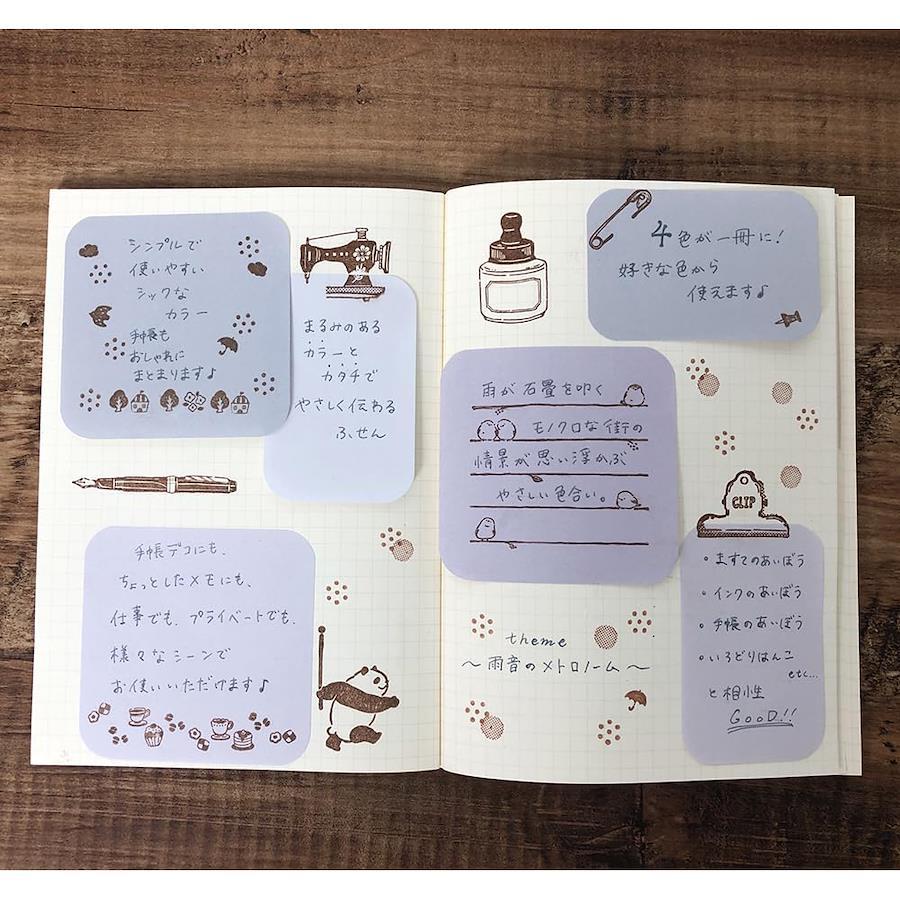 シンプルで
使いやすい
シックな
カラー
手帳も
おしゃれに
まとまります♪
まるみのある
カラーと
カタチで
やさしく伝わる
ふせん
手帳デコにも、
ちょっとしたメモにも、
仕事でも、プライベートでも、
様々なシーンで
お使いいただけます♪
4色が一冊に！
好きな色から
使えます♪
雨が石畳を叩く
モノクロな街の
情景が思い浮かぶ
やさしい色合い。
CLIP
・ますてのあいぼう
・インクのあいぼう
・手帳のあいぼう
・いろどりはんこ
etc...
と相性
GOOD!!
theme
～雨音のメトロノーム～